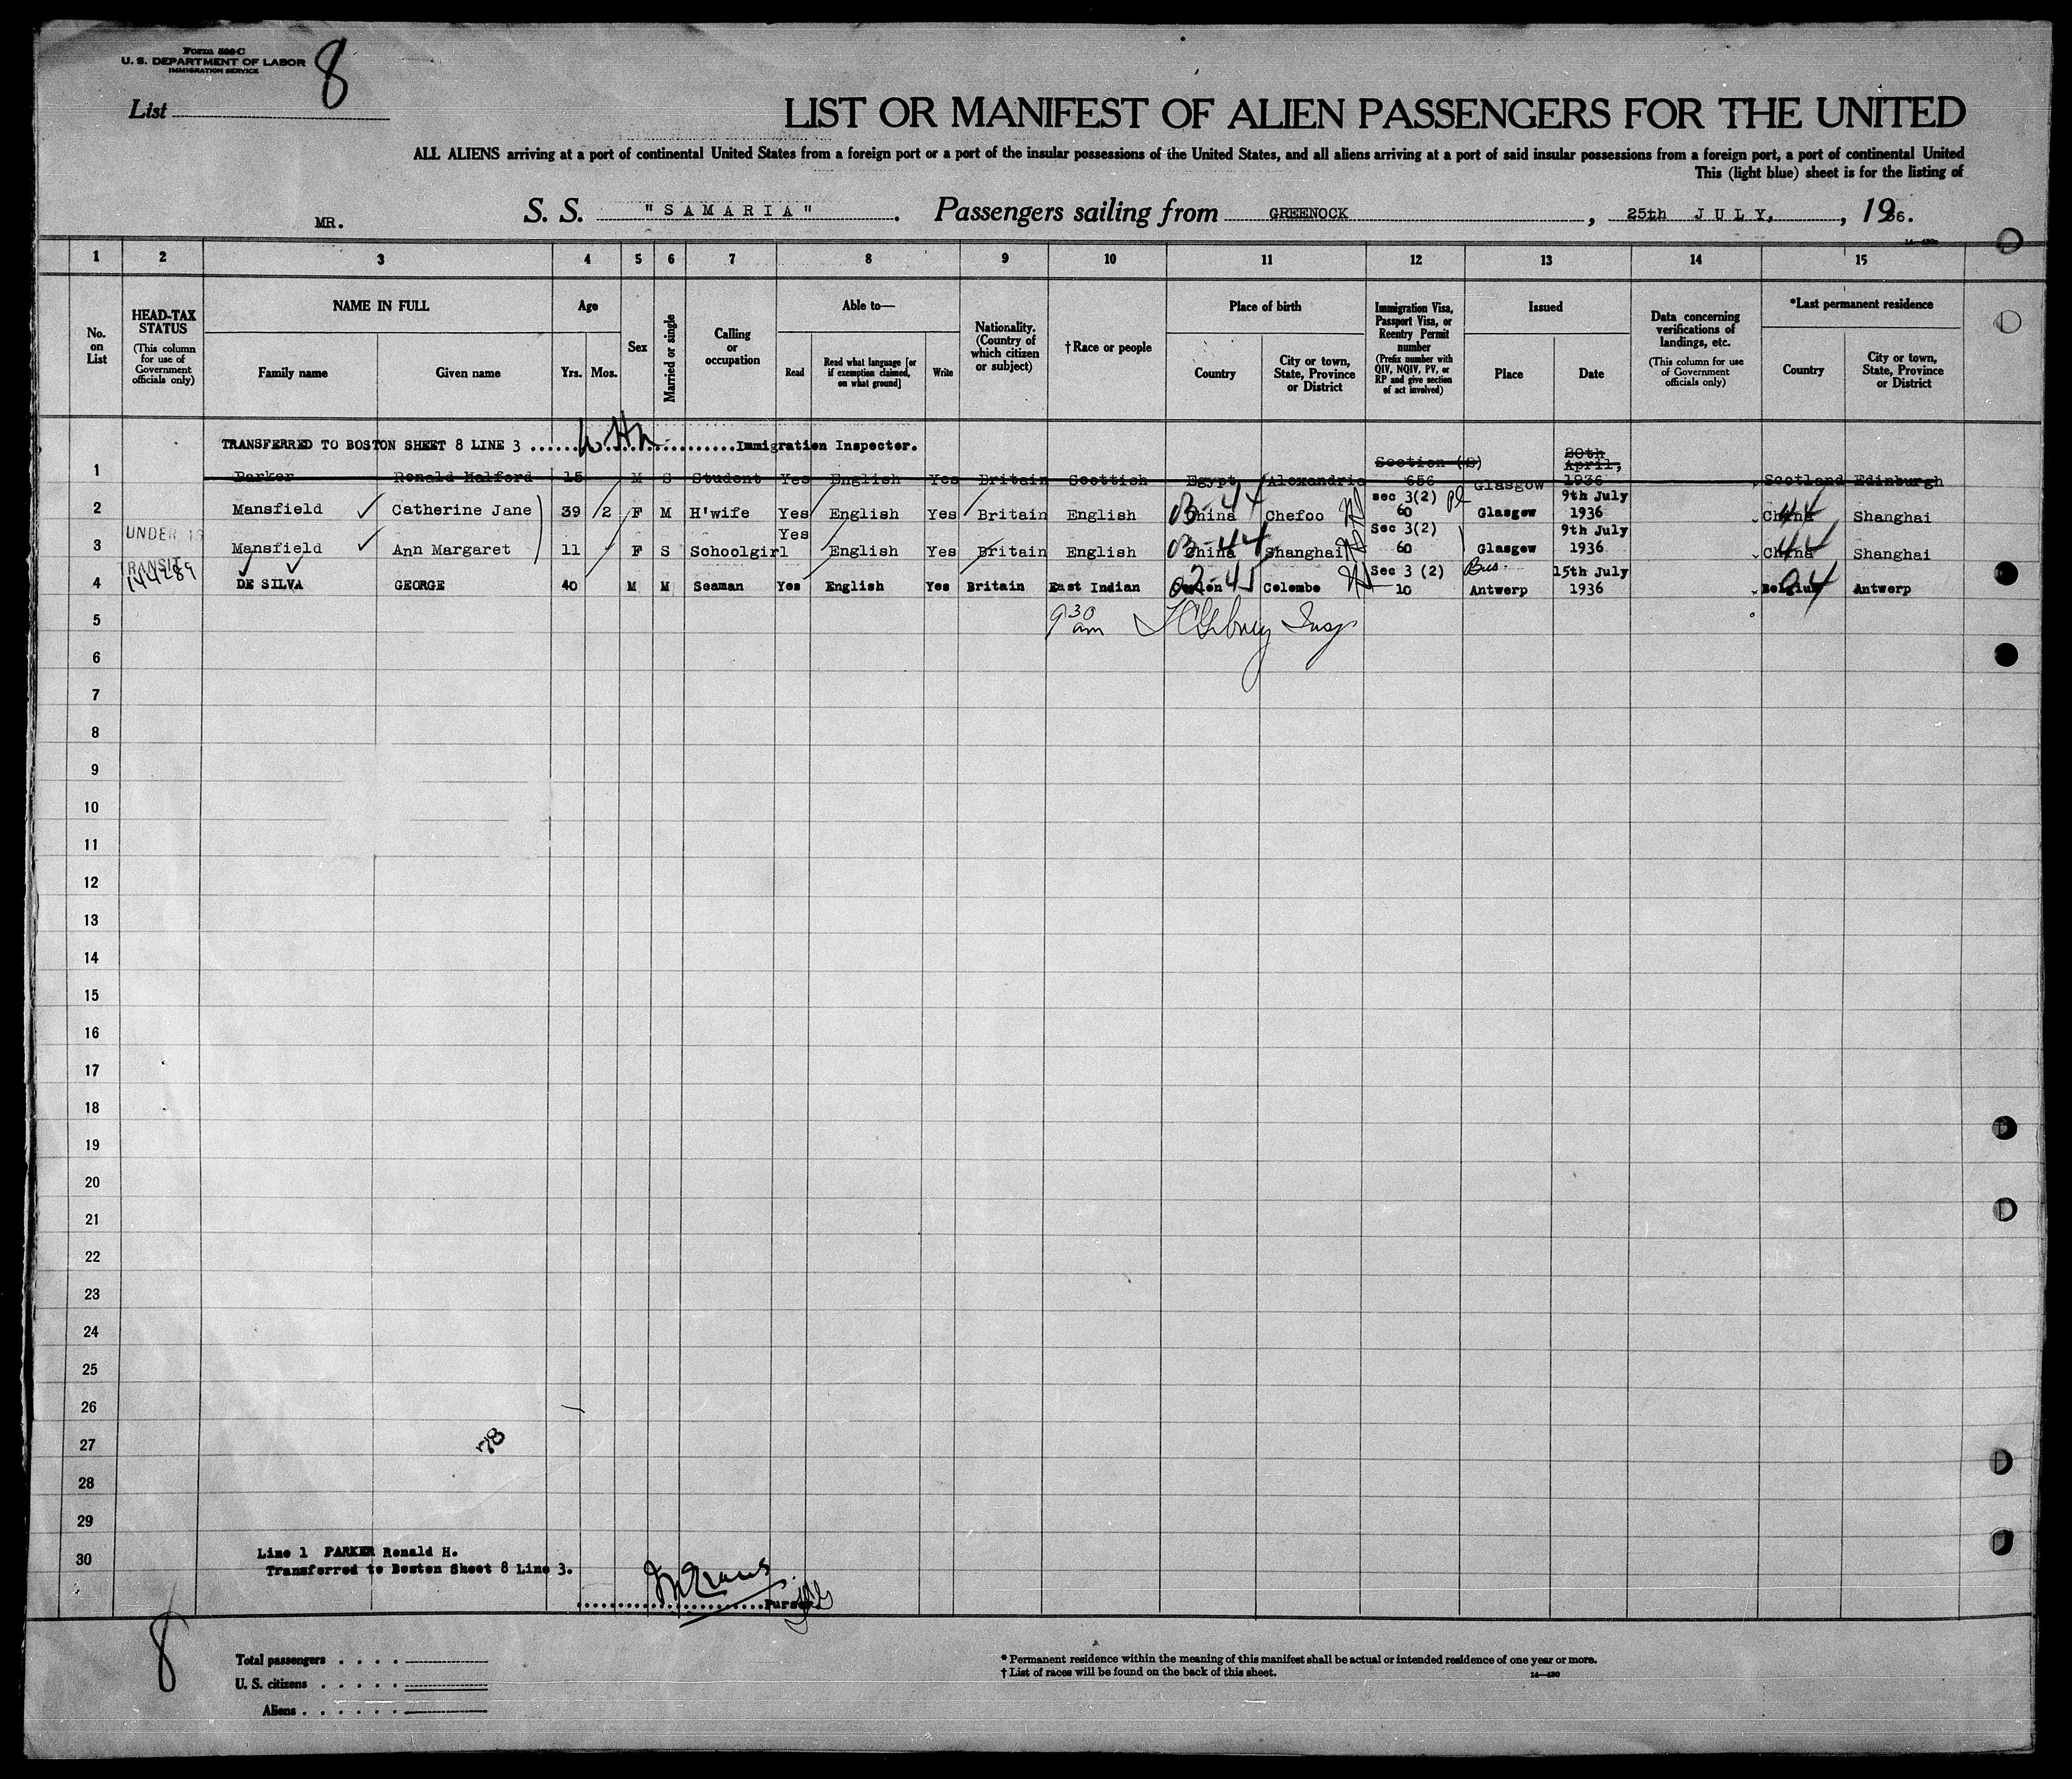 Form 500-C
U. S. DEPARTMENT OF LABOR
IMMIGRATION SERVICE
8
List
LIST OR MANIFEST OF ALIEN PASSENGERS FOR THE UNITED
ALL ALIENS arriving at a port of continental United States from a foreign port or a port of the insular possessions of the United States, and all aliens arriving at a port of said insular possessions from a foreign port, a port of continental United
This (light blue) sheet is for the listing of
MR. S. S. "SAMARIA". Passengers sailing from GREENOCK, 25th JULY, 1936.
1 2 3 4 5 6 7 8 9 10 11 12 13 14 15
No. on List
HEAD-TAX STATUS (This column for use of Government officials only)
NAME IN FULL
Family name Given name
Age
Yrs. Mos.
Sex
Married or single
Calling or occupation
Able to—
Read Read what language [or if exemption claimed, on what ground] Write
Nationality. (Country of which citizen or subject)
†Race or people
Place of birth
Country City or town, State, Province or District
Immigration Visa, Passport Visa, or Reentry Permit number (Prefix number with QIV, NQIV, PV, or RP and give section of act involved)
Issued
Place Date
Data concerning verifications of landings, etc. (This column for use of Government officials only)
*Last permanent residence
Country City or town, State, Province or District
TRANSFERRED TO BOSTON SHEET 8 LINE 3 Immigration Inspector.
1 Parker Ronald Halford 15 M S Student Yes English Yes Britain Scottish Egypt Alexandria Section (S) 656 Glasgow 20th April, 1936 Scotland Edinburgh
2 Mansfield Catherine Jane 39 2 F M H'wife Yes English Yes Britain English China Chefoo sec 3(2) 60 Glasgow 9th July 1936 China Shanghai
UNDER
3 Mansfield Ann Margaret 11 F S Schoolgirl Yes English Yes Britain English China Shanghai Sec 3(2) 60 Glasgow 9th July 1936 China Shanghai
TRANSIT
144289
4 DE SILVA GEORGE 40 M M Seaman Yes English Yes Britain East Indian Colombo Sec 3 (2) 10 Antwerp 15th July 1936 Belgium Antwerp
5 9 30 am Insp
6
7
8
9
10
11
12
13
14
15
16
17
18
19
20
21
22
23
24
25
26
27
78
28
29
30
Line 1 PARKER Ronald H.
Transferred to Boston Sheet 8 Line 3.
Purser
8
Total passengers
U. S. citizens
Aliens
* Permanent residence within the meaning of this manifest shall be actual or intended residence of one year or more.
† List of races will be found on the back of this sheet.
14—430